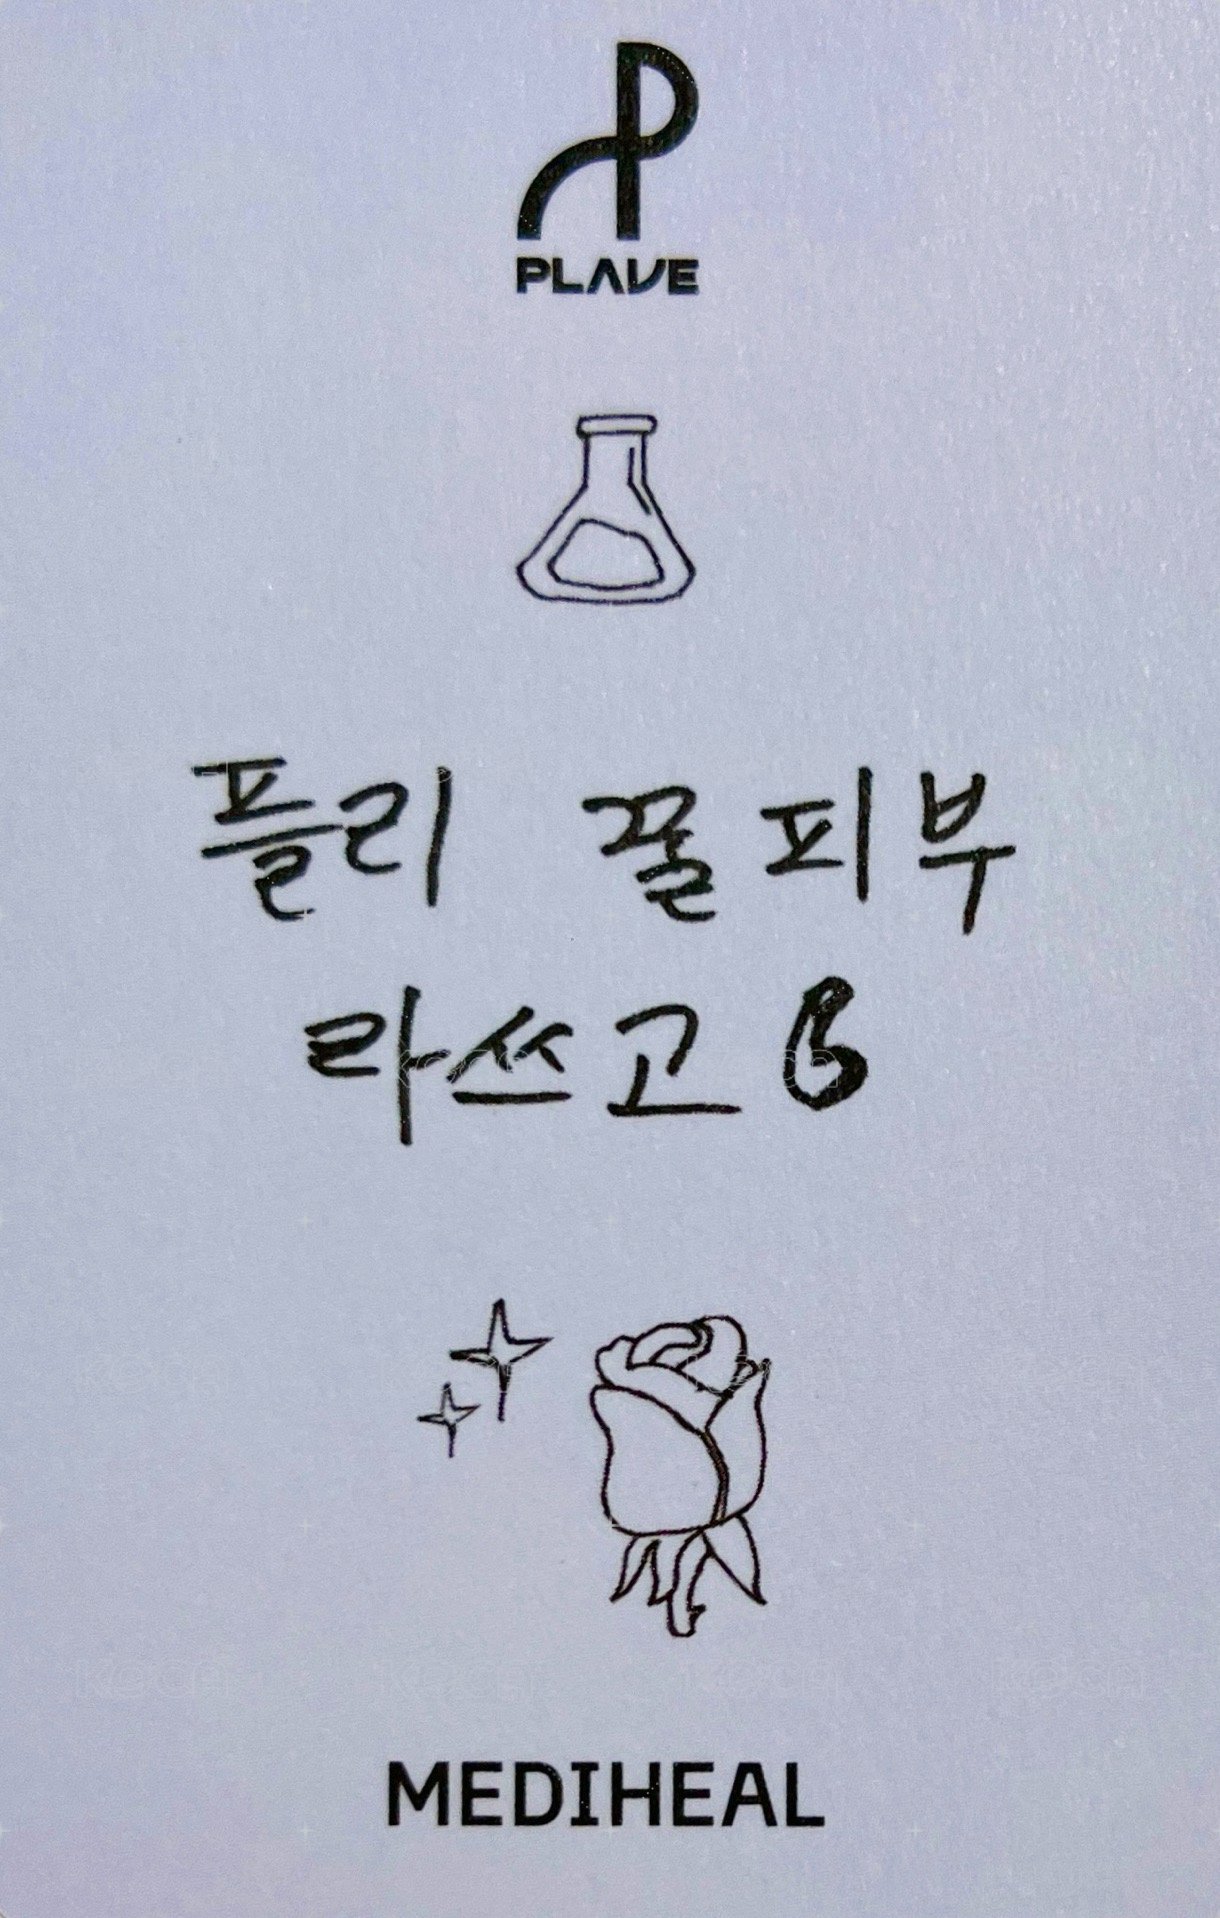 PLAVE
플리 꿀피부
라쓰고 6
MEDIHEAL